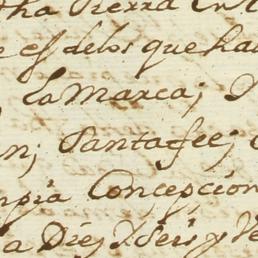 tha Tierra en el
e es delos que hai
la Marca; D
n; Santa fee; e
mpia Concepcion
a Diez y seis y Ve